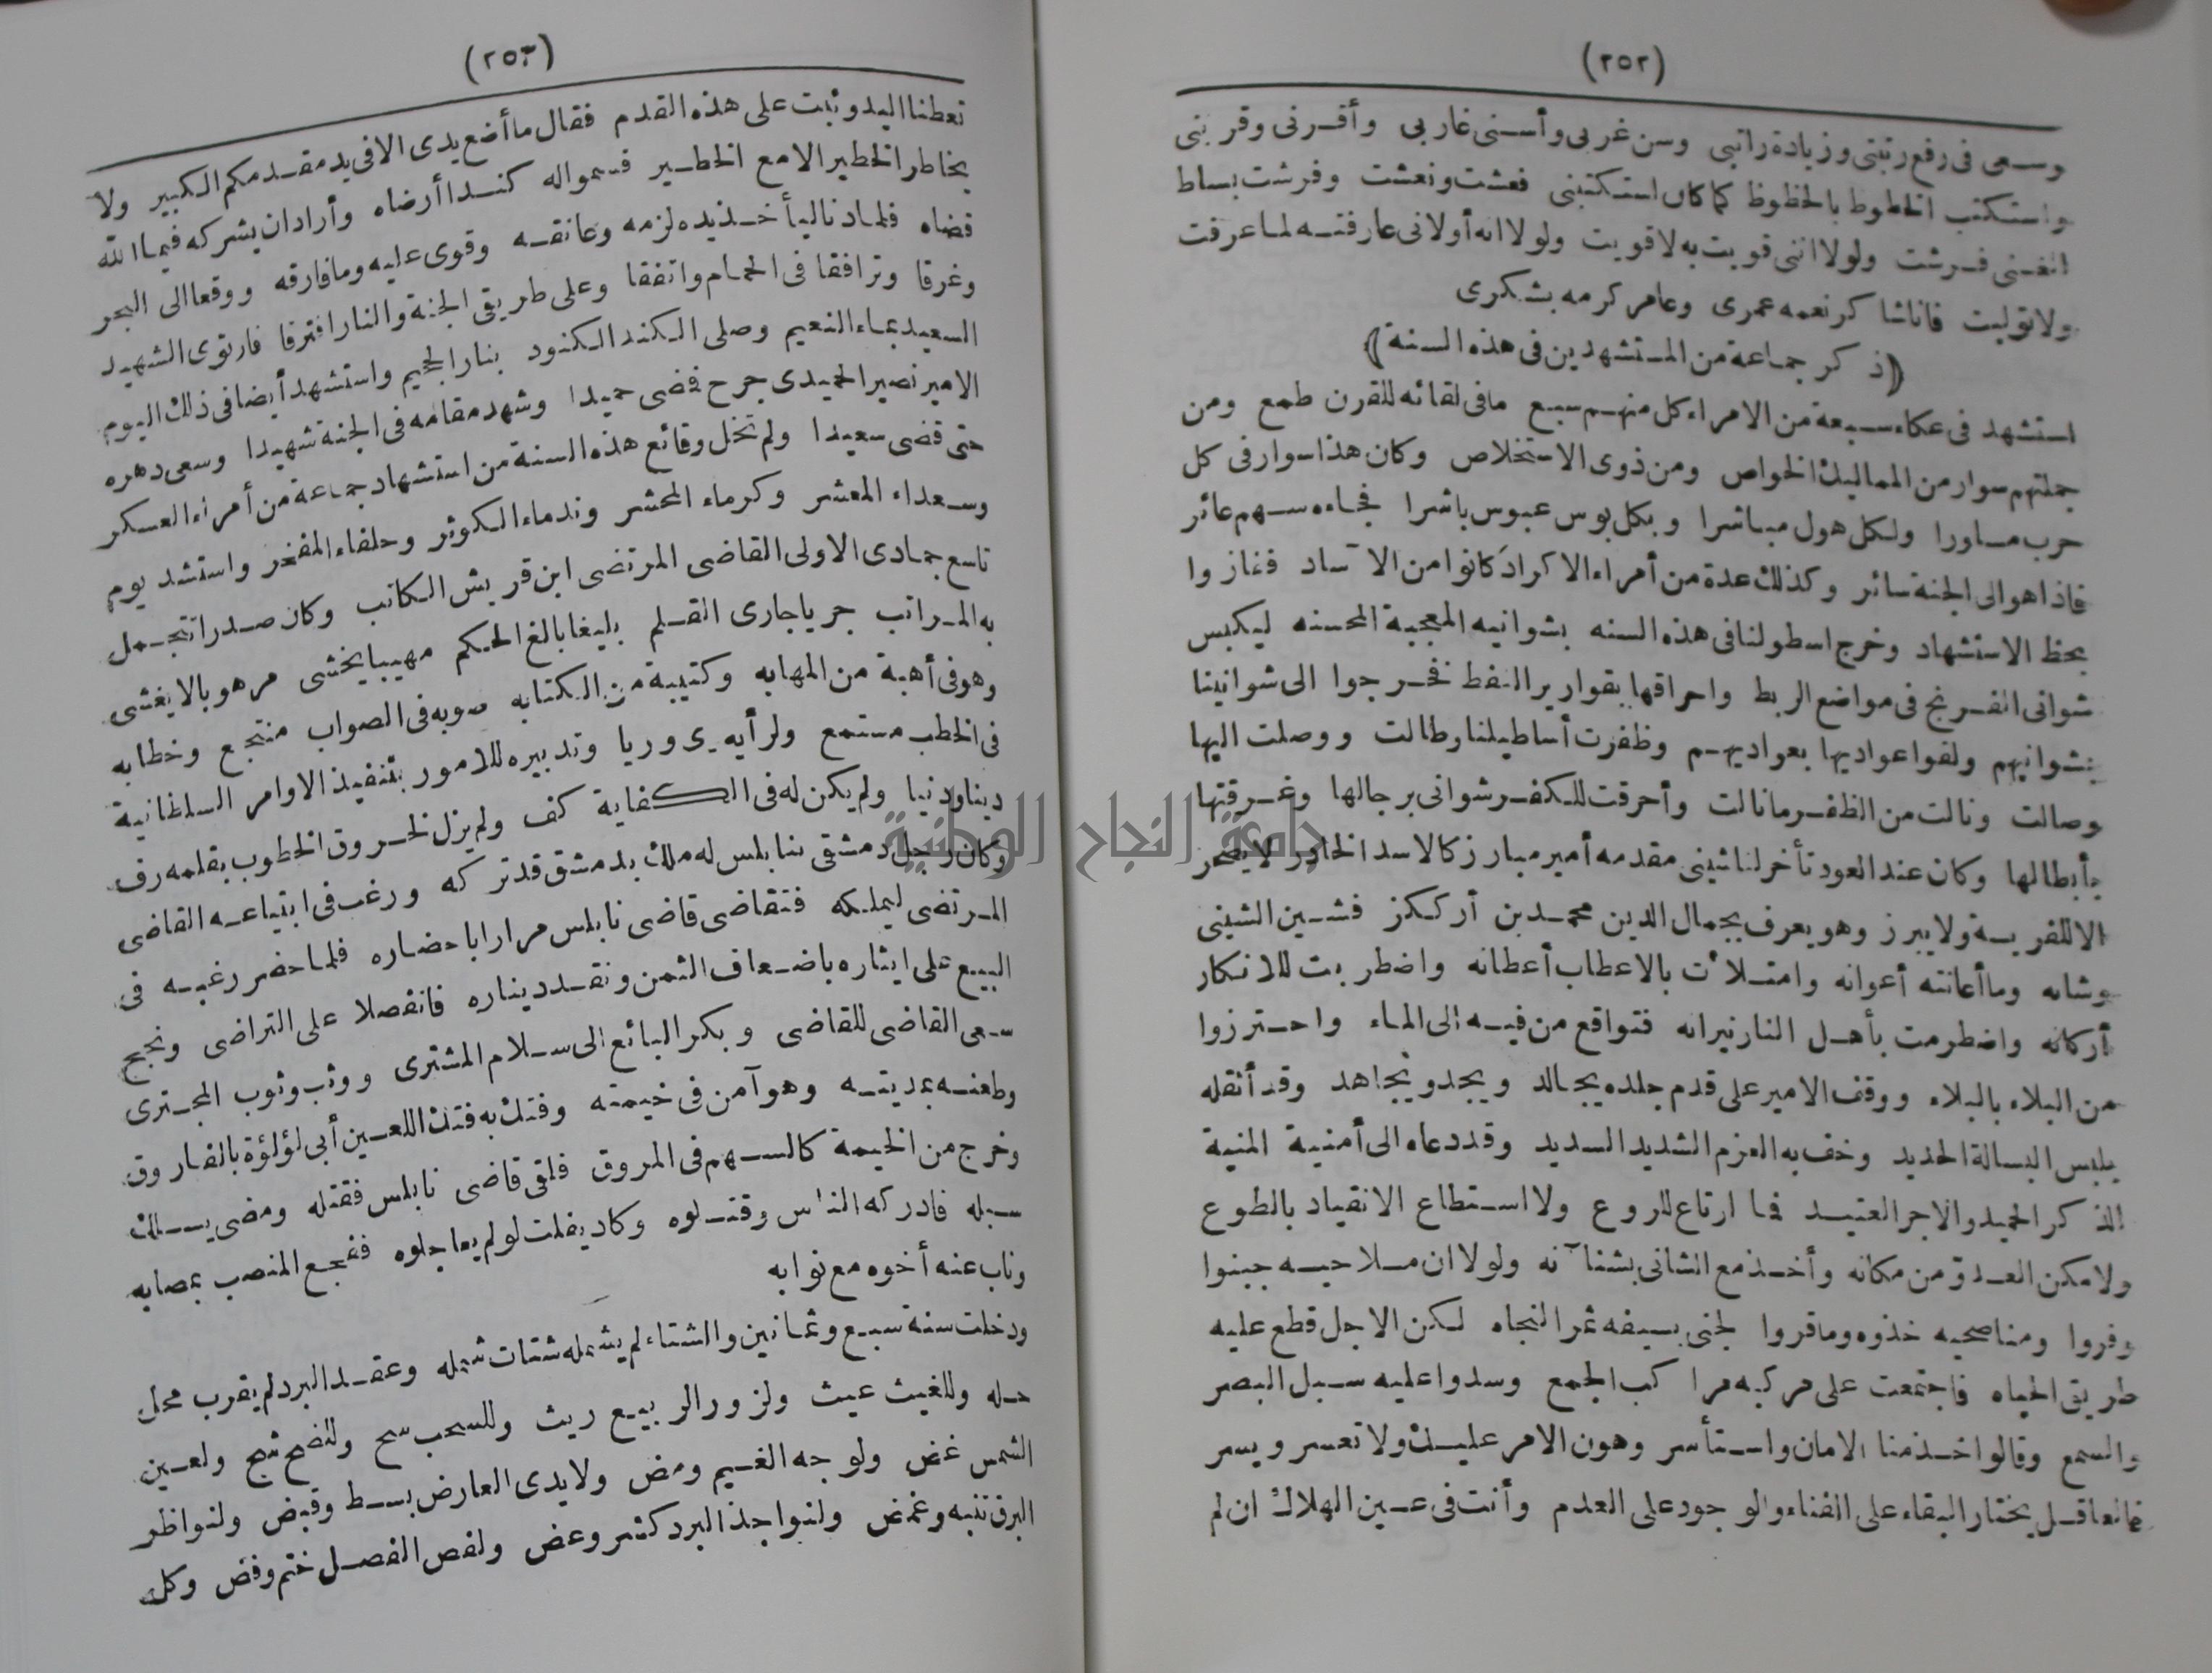 (٢٥٢)
وسعى فى رفع رتبتى وزيادة راتبى وسن غربى وأسنى غاربى وأقرنى وقربنى
واستكتب الخطوط بالحظوظ كما كان استكتبنى فعشت ونعشت وفرشت بساط
الغنى فرشت ولولا اننى قويت به لاقويت ولولا انه أولانى عارفته لما عرفت
ولا توليت فاناشا كر نعمه عمرى وعامر كرمه بشكرى
(ذكر جماعة من المستشهدين فى هذه السنة)
استشهد فى عكاء سبعة من الامراء كل منهم سبع ما فى لقائه للقرن طمع ومن
جملتهم سوار من المماليك الخواص ومن ذوى الاستخلاص وكان هذا سوار فى كل
حرب مساورا ولكل هول مباشرا وبكل بوس عبوس باشرا فجاءه سهم عائر
فاذا هو الى الجنة سائر وكذلك عدة من أمراء الاكراد كانوا من الآساد ففازوا
بحظ الاستشهاد وخرج اسطولنا فى هذه السنه بشوانيه المعجبة المحسنه ليكبس
شوانى الفرنج فى مواضع الربط واحراقها بقوارير النفط فخرجوا الى شوانينا
بشوانيهم ولقوا عواديها بعواديهم وظفرت أساطيلنا وطالت ووصلت اليها
وصالت ونالت من الظفر ما نالت وأحرقت للكفر شوانى برجالها وغرقتها
بأبطالها وكان عند العود تأخر لنا شينى مقدمه أمير مبارز كالاسد الخادر لا يصحر
الا للفريسة ولا يبرز وهو يعرف بجمال الدين محمد بن أرككز فشين الشينى
وشانه وما أعانته أعوانه وامتلأت بالاعطاب أعطانه واضطربت للانكار
أركانه واضطرمت بأهل النار نيرانه فتواقع من فيه الى الماء واحترزوا
من البلاء بالبلاء ووقف الامير على قدم جلده يجالد ويجد ويجاهد وقد أثقله
بلبس البسالة الحديد وخف به العزم الشديد السديد وقد دعاه الى أمنية المنية
الذكر الحميد والاجر العتيد فما ارتاع للروع ولا استطاع الانقياد بالطوع
ولا مكن العدو من مكانه وأخذ مع الشانى بشنآنه ولولا ان ملاحيه جبنوا
وفروا ومناصحيه خذوه وما قروا لجنى بسيفه ثمر النجاه لكن الاجل قطع عليه
طريق الحياه فاجتمعت على مركبه مراكب الجمع وسدوا عليه سبل البصر
والسمع وقالوا خذ منا الامان واستأسر وهون الامر عليك ولا تعسر ويسر
فالعاقل يختار البقاء على الفناء والوجود على العدم وأنت فى عين الهلاك ان لم
(٢٥٣)
تعطنا اليد وثبت على هذه القدم فقال ما أضع يدى الا فى يد مقدمكم الكبير ولا
يخاطر الخطير الا مع الخطير فسموا له كندا أرضاه وأراد ان يشركه فيما الله
قضاه فلما دنا ليأخذ يده لزمه وعانقه وقوى عليه وما فارقه ووقعا الى البحر
وغرقا وترافقا فى الحمام واتفقا وعلى طريقى الجنة والنار افترقا فارتوى الشهيد
السعيد بماء النعيم وصلى الكند الكنود بنار الجحيم واستشهد أيضا فى ذلك اليوم
الامير نصير الحميدى جرح فمضى حميدا وشهد مقامه فى الجنة شهيدا وسعى دهره
حتى قضى سعيدا ولم تخل وقائع هذه السنة من استشهاد جماعة من أمراء العسكر
وسعداء المعشر وكرماء المحشر وندماء الكوثر وحلفاء المفخر واستشهد يوم
تاسع جمادى الاولى القاضى المرتضى ابن قريش الكاتب وكان صدرا تتجمل
به المراتب جريا جارى القلم بليغا بالغ الحكم مهيبا يخشى مرهوبا لا يغشى
وهو فى أهبة من المهابه وكتيبة من الكتابه صوبه فى الصواب منتجع وخطابه
فى الخطب مستمع ولرأيه يرى وريا وتدبيره للامور بتنفيذ الاوامر السلطانية
دينا ودنيا ولم يكن له فى الكفاية كف ولم يزل لخروق الخطوب بقلمه رف
وكان رجل دمشقى بنابلس له ملك بدمشق قد تركه ورغب فى ابتياعه القاضى
المرتضى ليملكه فتقاضى قاضى نابلس مرارا باحضاره فلما حضر رغبه فى
البيع على ايثاره باضعاف الثمن ونقد ديناره فانفصلا على التراضى ونجح
سعى القاضى للقاضى وبكر البائع الى سلام المشترى ووثب وثوب المجترى
وطعنه بمديته وهو آمن فى خيمته وفتك به فتك اللعين أبى لؤلؤة بالفاروق
وخرج من الخيمة كالسهم فى المروق فلقى قاضى نابلس فقتله ومضى يسلك
سبله فادركه الناس وقتلوه وكاد يفلت لو لم يعاجلوه ففجع المنصب بمصابه
وناب عنه أخوه مع نوابه
ودخلت سنة سبع وثمانين والشتاء لم يشمله شتات شمله وعقد البرد لم يقرب محل
حله وللغيث عيث ولزور الربيع ريث وللسحب سح وللنضح شح ولعين
الشمس غض ولوجه الغيم ومض ولا يدى العارض بسط وقبض ولنواظر
البرق تنبه وغمض ولنواجذ البرد كشر وعض ولفص الفصل ختم وفض وكل
جامعة النجاح الوطنية